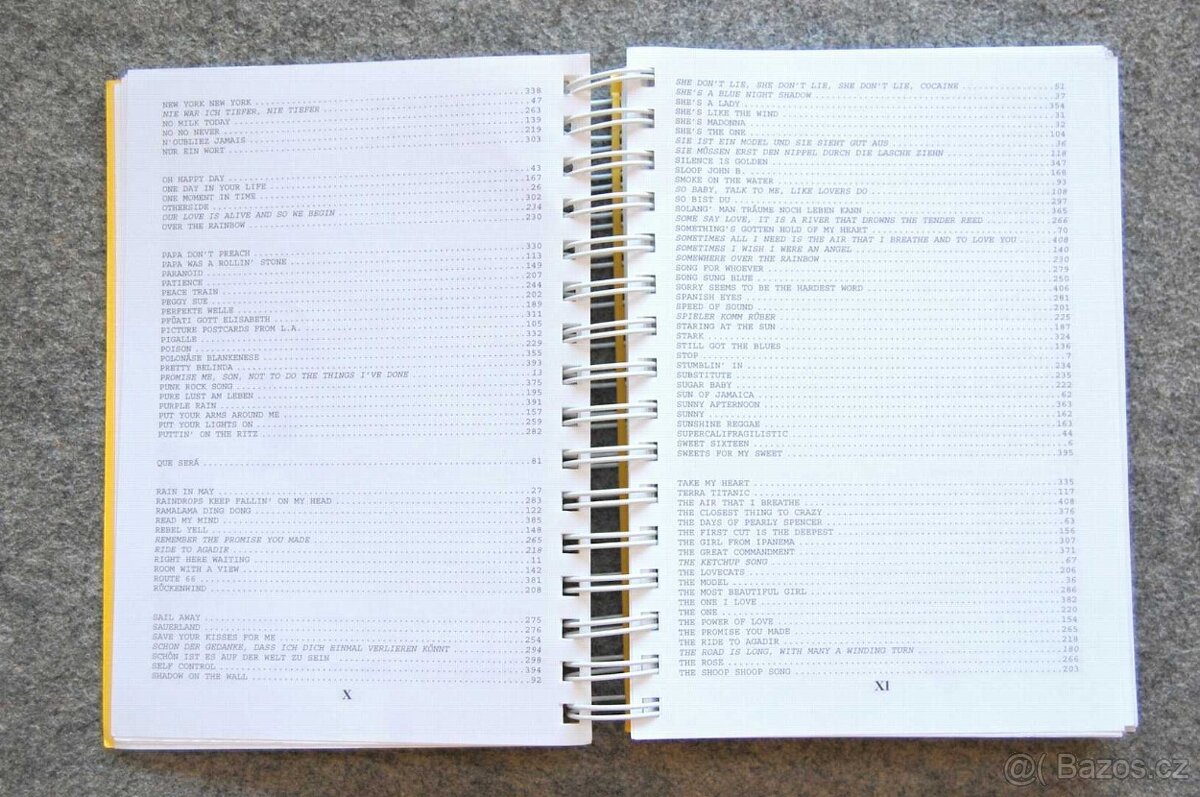 NEW YORK NEW YORK ........ 338
NIE WAR ICH TIEFER, NIE TIEFER ........ 47
NO MILK TODAY ........ 263
NO NO NEVER ........ 139
N'OUBLIEZ JAMAIS ........ 219
NUR EIN WORT ........ 303
OH HAPPY DAY ........ 43
ONE DAY IN YOUR LIFE ........ 167
ONE MOMENT IN TIME ........ 26
OTHERSIDE ........ 302
OUR LOVE IS ALIVE AND SO WE BEGIN ........ 234
OVER THE RAINBOW ........ 230
PAPA DON'T PREACH ........ 330
PAPA WAS A ROLLIN' STONE ........ 113
PARANOID ........ 149
PATIENCE ........ 207
PEACE TRAIN ........ 244
PEGGY SUE ........ 202
PERFEKTE WELLE ........ 189
PFÜATI GOTT ELISABETH ........ 311
PICTURE POSTCARDS FROM L.A. ........ 105
PIGALLE ........ 332
POISON ........ 229
POLONÄSE BLANKENESE ........ 355
PRETTY BELINDA ........ 393
PROMISE ME, SON, NOT TO DO THE THINGS I'VE DONE ........ 13
PUNK ROCK SONG ........ 375
PURE LUST AM LEBEN ........ 195
PURPLE RAIN ........ 391
PUT YOUR ARMS AROUND ME ........ 157
PUT YOUR LIGHTS ON ........ 259
PUTTIN' ON THE RITZ ........ 282
QUE SERÁ ........ 81
RAIN IN MAY ........ 27
RAINDROPS KEEP FALLIN' ON MY HEAD ........ 283
RAMALAMA DING DONG ........ 122
READ MY MIND ........ 385
REBEL YELL ........ 148
REMEMBER THE PROMISE YOU MADE ........ 265
RIDE TO AGADIR ........ 218
RIGHT HERE WAITING ........ 11
ROOM WITH A VIEW ........ 142
ROUTE 66 ........ 381
RÜCKENWIND ........ 208
SAIL AWAY ........ 275
SAUERLAND ........ 276
SAVE YOUR KISSES FOR ME ........ 254
SCHON DER GEDANKE, DASS ICH DICH EINMAL VERLIEREN KÖNNT ........ 294
SCHÖN IST ES AUF DER WELT ZU SEIN ........ 298
SELF CONTROL ........ 394
SHADOW ON THE WALL ........ 92
X
SHE DON'T LIE, SHE DON'T LIE, SHE DON'T LIE, COCAINE ........ 51
SHE'S A BLUE NIGHT SHADOW ........ 37
SHE'S A LADY ........ 354
SHE'S LIKE THE WIND ........ 31
SHE'S MADONNA ........ 32
SHE'S THE ONE ........ 104
SIE IST EIN MODEL UND SIE SIEHT GUT AUS ........ 36
SIE MÜSSEN ERST DEN NIPPEL DURCH DIE LASCHE ZIEHN ........ 118
SILENCE IS GOLDEN ........ 347
SLOOP JOHN B. ........ 168
SMOKE ON THE WATER ........ 93
SO BABY, TALK TO ME, LIKE LOVERS DO ........ 108
SO BIST DU ........ 297
SOLANG' MAN TRÄUME NOCH LEBEN KANN ........ 365
SOME SAY LOVE, IT IS A RIVER THAT DROWNS THE TENDER REED ........ 266
SOMETHING'S GOTTEN HOLD OF MY HEART ........ 70
SOMETIMES ALL I NEED IS THE AIR THAT I BREATHE AND TO LOVE YOU ........ 408
SOMETIMES I WISH I WERE AN ANGEL ........ 140
SOMEWHERE OVER THE RAINBOW ........ 230
SONG FOR WHOEVER ........ 279
SONG SUNG BLUE ........ 250
SORRY SEEMS TO BE THE HARDEST WORD ........ 406
SPANISH EYES ........ 281
SPEED OF SOUND ........ 201
SPIELER KOMM RÜBER ........ 225
STARING AT THE SUN ........ 187
STARK ........ 324
STILL GOT THE BLUES ........ 136
STOP ........ 7
STUMBLIN' IN ........ 234
SUBSTITUTE ........ 235
SUGAR BABY ........ 222
SUN OF JAMAICA ........ 62
SUNNY AFTERNOON ........ 363
SUNNY ........ 162
SUNSHINE REGGAE ........ 163
SUPERCALIFRAGILISTIC ........ 44
SWEET SIXTEEN ........ 6
SWEETS FOR MY SWEET ........ 395
TAKE MY HEART ........ 335
TERRA TITANIC ........ 117
THE AIR THAT I BREATHE ........ 408
THE CLOSEST THING TO CRAZY ........ 376
THE DAYS OF PEARLY SPENCER ........ 63
THE FIRST CUT IS THE DEEPEST ........ 156
THE GIRL FROM IPANEMA ........ 307
THE GREAT COMMANDMENT ........ 371
THE KETCHUP SONG ........ 67
THE LOVECATS ........ 206
THE MODEL ........ 36
THE MOST BEAUTIFUL GIRL ........ 286
THE ONE I LOVE ........ 382
THE ONE ........ 220
THE POWER OF LOVE ........ 154
THE PROMISE YOU MADE ........ 265
THE RIDE TO AGADIR ........ 218
THE ROAD IS LONG, WITH MANY A WINDING TURN ........ 180
THE ROSE ........ 266
THE SHOOP SHOOP SONG ........ 203
XI
@( Bazos.cz